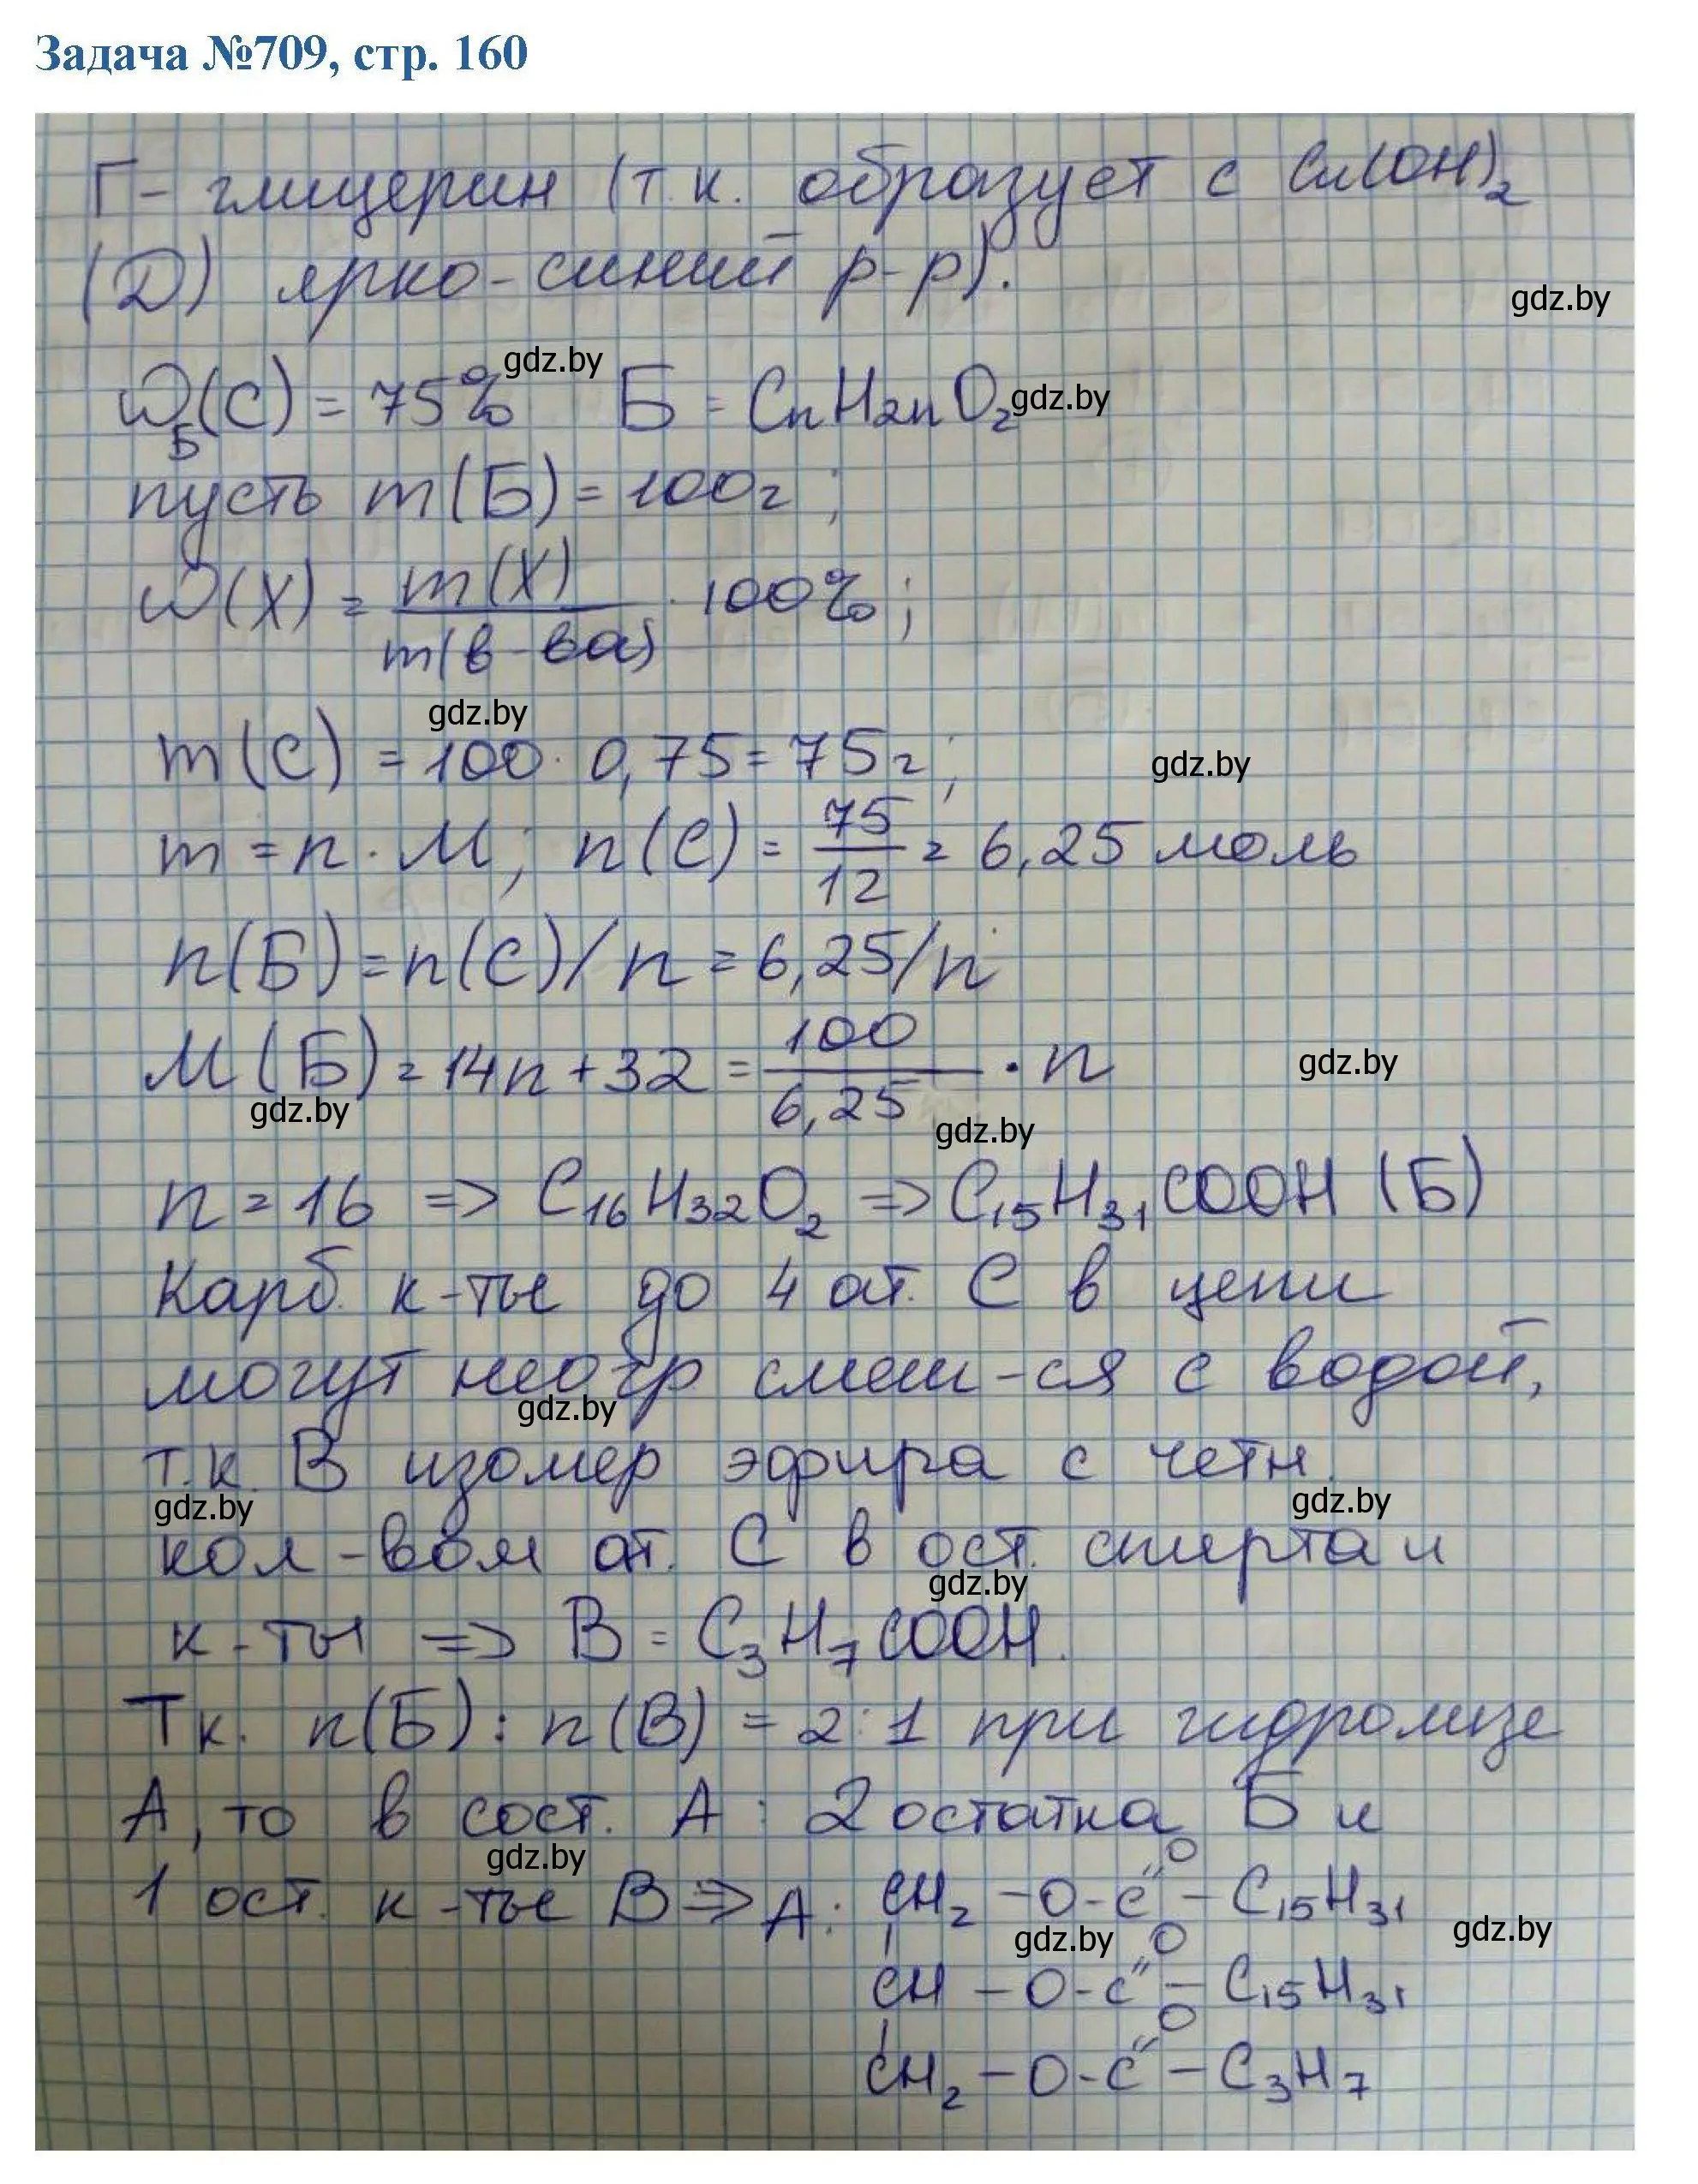 Задача №709, стр. 160
Г - глицерин (т.к. образует с Cu(OH)₂
(D) ярко-синий р-р).
gdz.by
gdz.by
ω_Б(C) = 75% Б = CnH2nO₂
gdz.by
пусть m(Б) = 100г ;
ω(X) = m(X)/m(в-ва) · 100% ;
gdz.by
m(C) = 100 · 0,75 = 75г ;
gdz.by
m = n · M ; n(C) = 75/12 = 6,25 моль
n(Б) = n(C)/n = 6,25/n
M(Б) = 14n + 32 = 100/6,25 · n
gdz.by
gdz.by
gdz.by
n = 16 => C₁₆H₃₂O₂ => C₁₅H₃₁COOH (Б)
Карб. к-ты до 4 ат. C в цепи
могут неогр смеш-ся с водой,
gdz.by
т.к. В изомер эфира с четн.
gdz.by
gdz.by
кол-вом ат. C в ост. спирта и
gdz.by
к-ты => В = C₃H₇COOH.
Т.к. n(Б) : n(В) = 2:1 при гидролизе
А, то в сост. А : 2 остатка Б и
gdz.by
1 ост. к-ты В => А: CH₂ - O - C(=O) - C₁₅H₃₁
gdz.by
gdz.by
CH - O - C(=O) - C₁₅H₃₁
CH₂ - O - C(=O) - C₃H₇